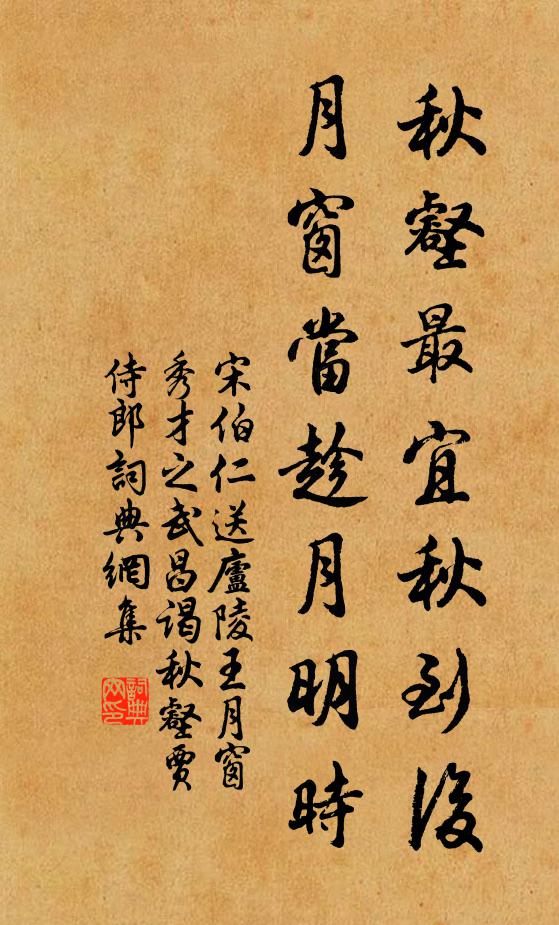 秋壑最宜秋到後
月窗當趁月明時
宋伯仁送廬陵王月窗
秀才之武昌謁秋壑賈
侍郎詞典網集
詞典
网印